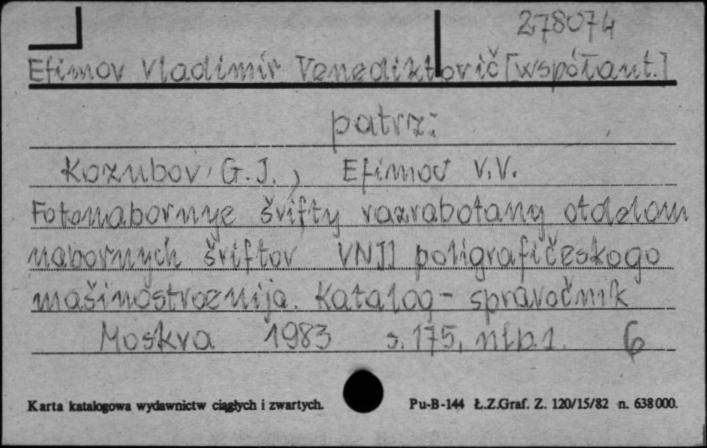 278074
Efimov Vladimir Venediktovič [współaut.]
patrz:
Kozubov G.J., Efimov V.V.
Fotonabornye šrifty razrabotany otdelom
nabornych šriftov VNJJ poligrafičeskogo
mašinostroenija. Katalog - spravočnik
Moskva 1983 s. 175, nlb 1. 6
Karta katalogowa wydawnictw ciągłych i zwartych. Pu-B-144 Ł.Z.Graf. Z. 120/15/82 n. 638000.